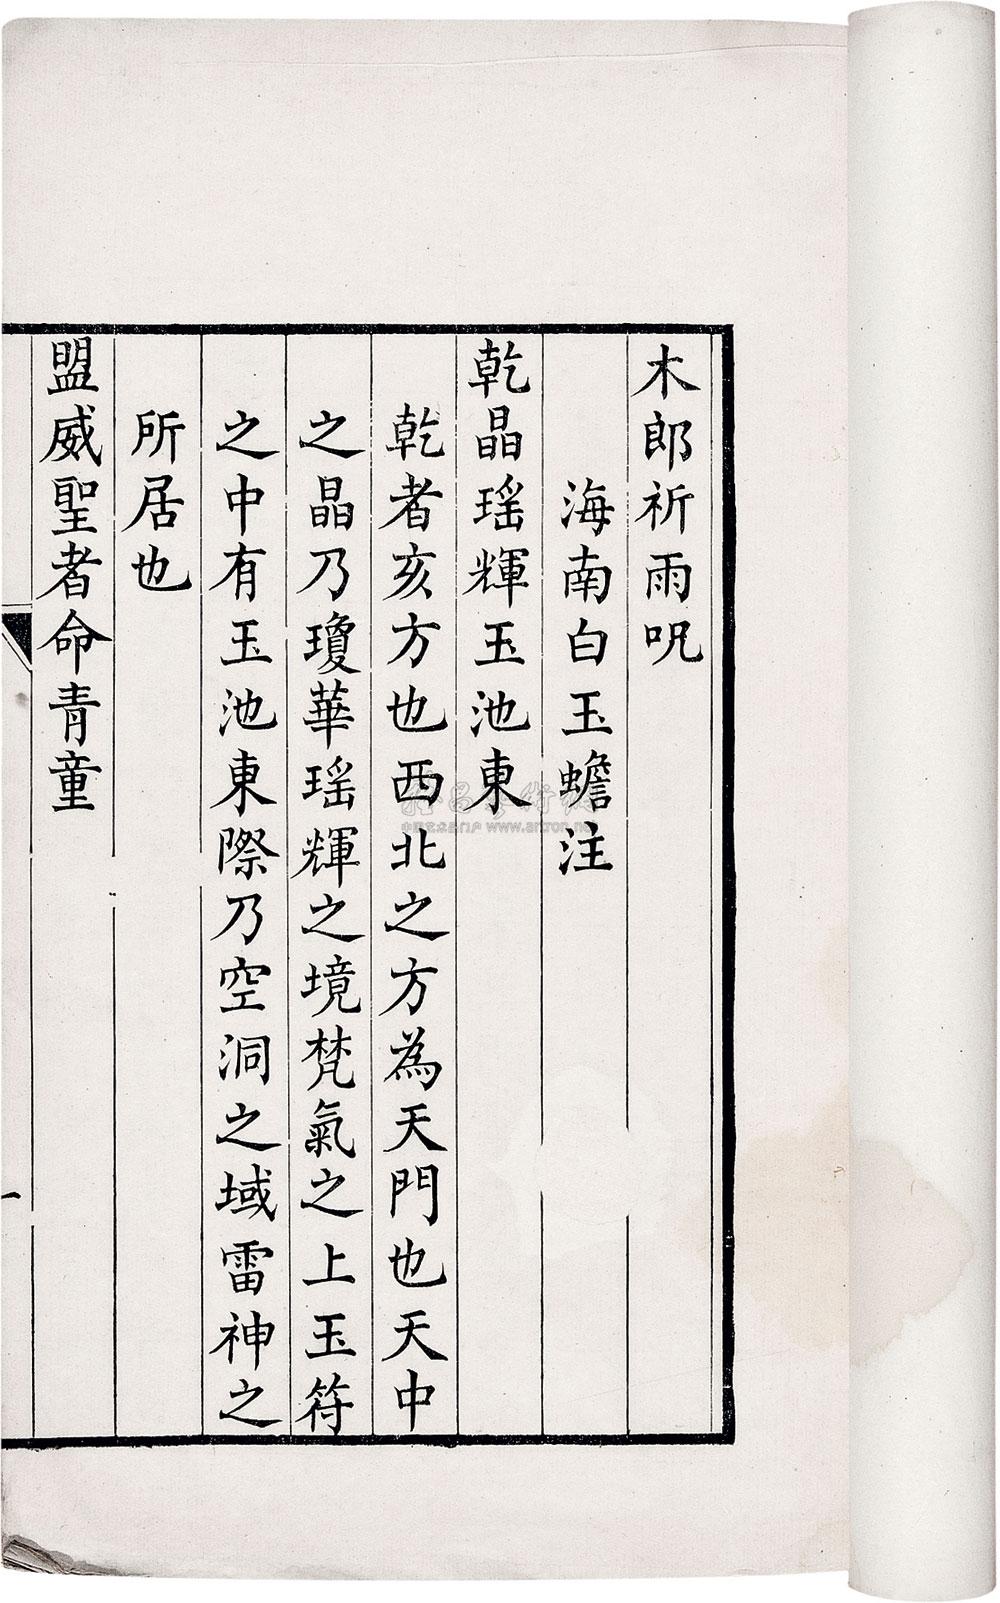 木郎祈雨呪
海南白玉蟾注
乾晶瑤輝玉池東
乾者亥方也西北之方為天門也天中
之晶乃瓊華瑤輝之境梵氣之上玉符
之中有玉池東際乃空洞之域雷神之
所居也
盟威聖者命青童
一
www.artron.net